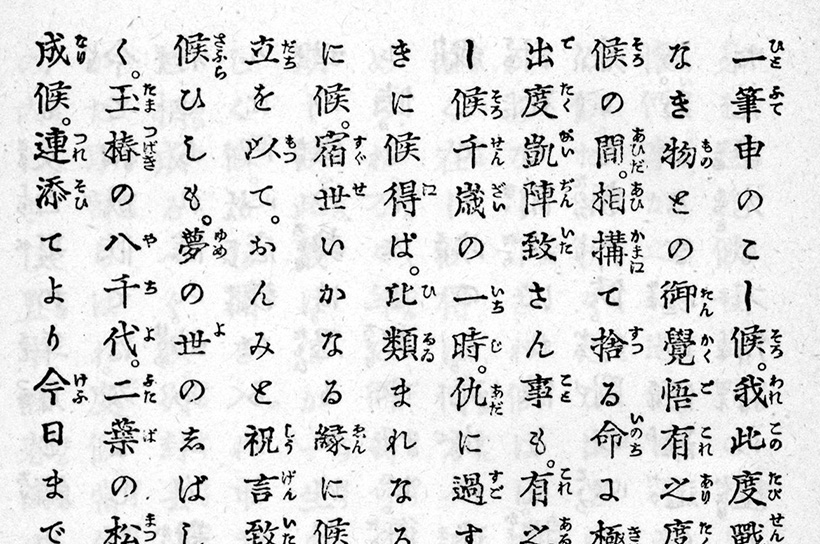 一筆申のこし候。我此度戰
なき物との御覺悟有之度
候の間。相搆て捨る命に極
出度凱陣致さん事も。有之
し候千歳の一時。仇に過す
きに候得ば。比類まれなる
に候。宿世いかなる縁に候
立を以て。おんみと祝言致
候ひしも。夢の世の志ばし
く。玉椿の八千代。二葉の松
成候。連添てより今日まで